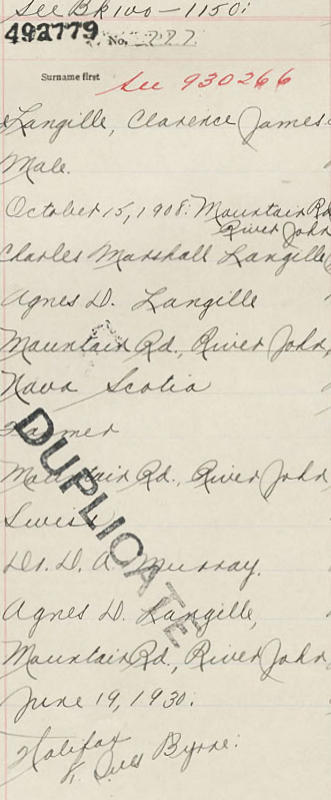 See Bk 100 - 1150:
492779 No. 777
Surname first
See 930266
Langille, Clarence James
Male.
October 15, 1908: Mountain Rd
River John
Charles Marshall Langille
Agnes D. Langille
Mountain Rd., River John,
Nova Scotia
Farmer
Mountain Rd., River John
Swiss
DUPLICATE
Dr. D. A. Murray.
Agnes D. Langille,
Mountain Rd., River John
June 19, 1930.
Halifax
Byrne: